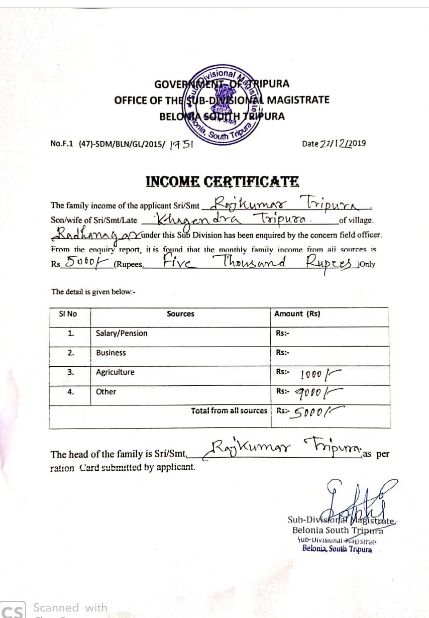 GOVERNMENT OF TRIPURA
OFFICE OF THE SUB-DIVISIONAL MAGISTRATE
BELONIA SOUTH TRIPURA
Sub-Divisional Magistrate
Belonia, South Tripura
No.F.1 (47)-SDM/BLN/GL/2015/ 1951 Date 22/12/2019
INCOME CERTIFICATE
The family income of the applicant Sri/Smt Rajkumar Tripura
Son/wife of Sri/Smt/Late Khagendra Tripura of village.
Radhanagar under this Sub Division has been enquired by the concern field officer.
From the enquiry report, it is found that the monthly family income from all sources is
Rs 5000/- (Rupees, Five Thousand Rupees )Only
The detail is given below:-
Sl No Sources Amount (Rs)
1. Salary/Pension Rs:-
2. Business Rs:-
3. Agriculture Rs:- 1000/-
4. Other Rs:- 4000/-
Total from all sources Rs:- 5000/-
The head of the family is Sri/Smt, Rajkumar Tripura as per
ration Card submitted by applicant.
Sub-Divisional Magistrate
Belonia South Tripura
Sub-Divisional Magistrate
Belonia, South Tripura
CS Scanned with